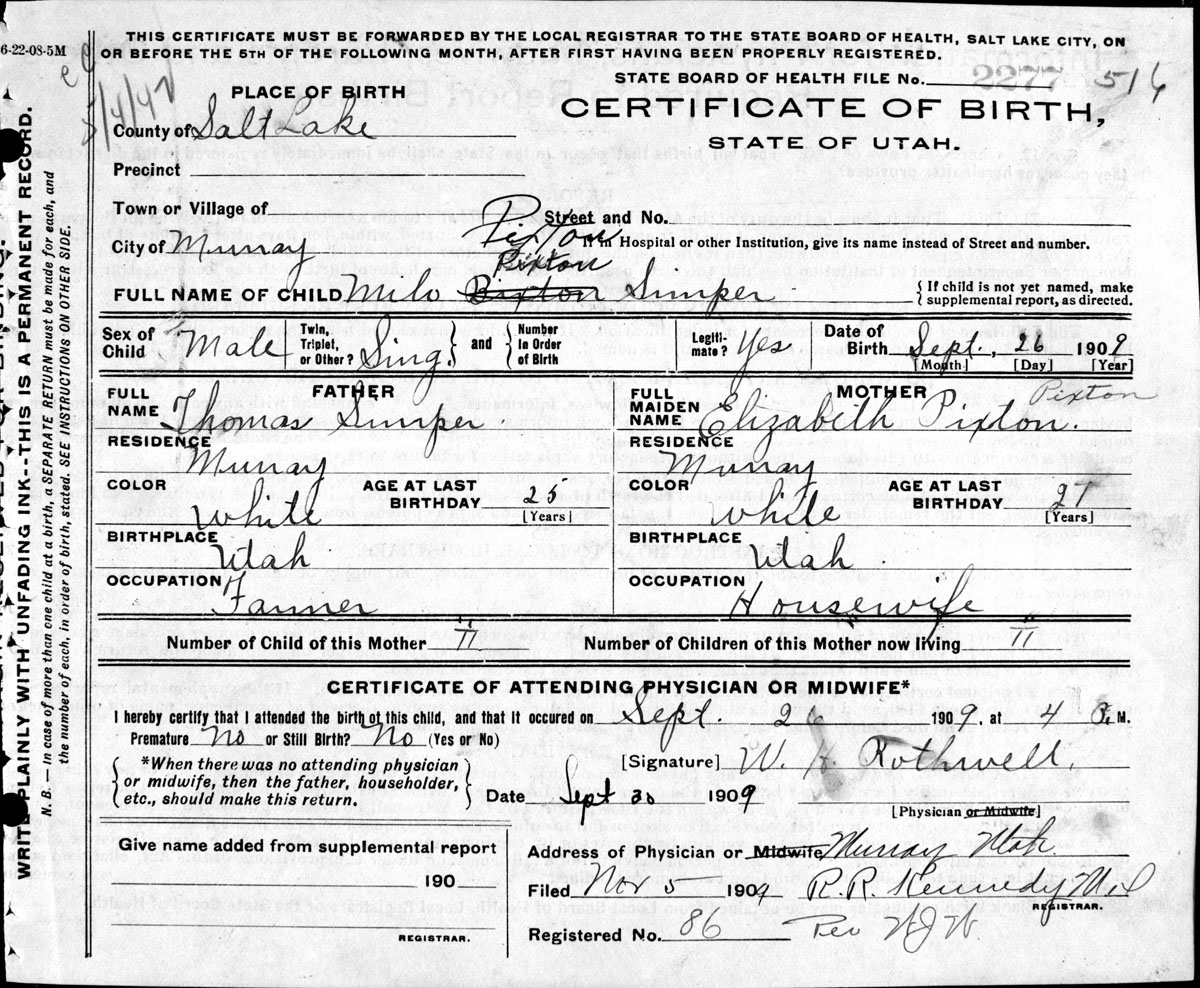 6-22-08-5M
THIS CERTIFICATE MUST BE FORWARDED BY THE LOCAL REGISTRAR TO THE STATE BOARD OF HEALTH, SALT LAKE CITY, ON
OR BEFORE THE 5TH OF THE FOLLOWING MONTH, AFTER FIRST HAVING BEEN PROPERLY REGISTERED.
STATE BOARD OF HEALTH FILE No. 2277 516
PLACE OF BIRTH
CERTIFICATE OF BIRTH,
STATE OF UTAH.
County of Salt Lake
Precinct
Town or Village of
Street and No.
City of Murray
Pixton
If in Hospital or other Institution, give its name instead of Street and number.
Pixton
FULL NAME OF CHILD Milo Bixton Simper
{ If child is not yet named, make
supplemental report, as directed.
Sex of Child Male
Twin, Triplet, or Other? Sing. and Number in Order of Birth
Legiti-mate? Yes
Date of Birth Sept., 26 1909
[Month] [Day] [Year]
FATHER
FULL NAME Thomas Simper
RESIDENCE Murray
COLOR White AGE AT LAST BIRTHDAY 25 [Years]
BIRTHPLACE Utah
OCCUPATION Farmer
MOTHER Pixton
FULL MAIDEN NAME Elizabeth Pixton.
RESIDENCE Murray
COLOR White AGE AT LAST BIRTHDAY 21 [Years]
BIRTHPLACE Utah
OCCUPATION Housewife
Number of Child of this Mother II Number of Children of this Mother now living II
CERTIFICATE OF ATTENDING PHYSICIAN OR MIDWIFE*
I hereby certify that I attended the birth of this child, and that it occured on Sept. 26 1909, at 4 P. M.
Premature No or Still Birth? No (Yes or No)
*When there was no attending physician
or midwife, then the father, householder,
etc., should make this return.
[Signature] W. H. Rothwell,
Date Sept 30 1909
[Physician or Midwife]
Give name added from supplemental report
190
REGISTRAR.
Address of Physician or Midwife Murray Utah
Filed Nov 5 1909 R. R. Kennedy MD
REGISTRAR.
Registered No. 86 Per
WRITE PLAINLY WITH UNFADING INK--THIS IS A PERMANENT RECORD.
N. B. — In case of more than one child at a birth, a SEPARATE RETURN must be made for each, and
the number of each, in order of birth, stated. SEE INSTRUCTIONS ON OTHER SIDE.